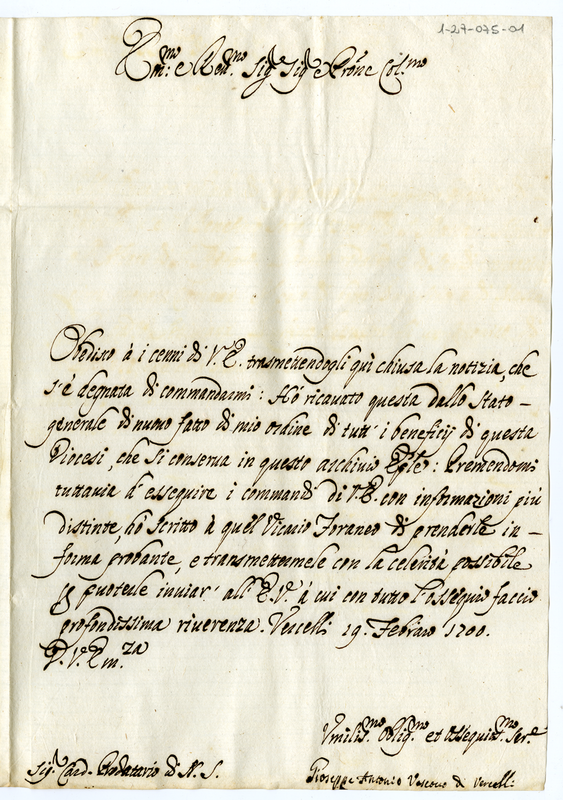 1-27-075-01
Em:mo e Rev.mo Sig.r Sig.r e P̃rone Col.mo
Obedisco à i cenni di V.E. trasmettendogli quì chiusa la notizia, che
s'è degnata di commandarmi: Hò ricavato questa dallo stato
generale di nuovo fatto di mio ordine di tutt' i beneficij di questa
Diocesi, che si conserva in questo archivio Ep̃le: Premendomi
tuttavia d'esseguire i commandi di V.E. con informazioni più
distinte, hò scritto à quel Vicario Foraneo di prenderle in
forma probante, e trasmettermele con la celerità possibile
poterle inviar' all' E.V. à cui con tutto l'ossequio faccio
profondissima riverenza. Vercelli 19. Febraro 1700.
D. V. Em.za
Vmiliss.mo Oblig.mo et Ossequiat.mo Ser.e
Sig.r Card. Prodatario di N. S.
Gioseppe Antonio Vescovo di Vercelli